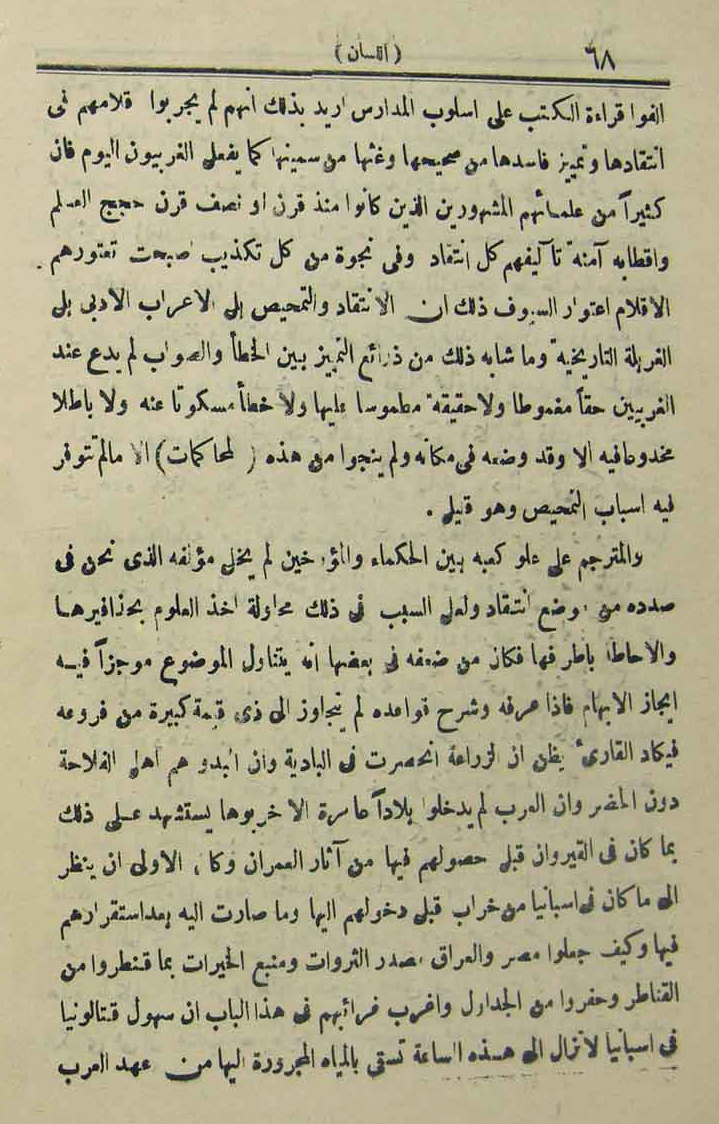 ٦٨ (اللسان)
الفوا قراءة الكتب على اسلوب المدارس اريد بذلك انهم لم يجربوا قلامهم فى
انتقادها وتمييز فاسدها من صحيحها وغثها من سمينها كما يفعل الغربيون اليوم فان
كثيراً من علمائهم المشهورين الذين كانوا منذ قرن او نصف قرن حجج العلم
واقطابه آمنة تآليفهم كل انتقاد وفى نجوة من كل تكذيب اصبحت تعتورهم
الاقلام اعتوار السيوف ذلك ان الانتقاد والتمحيص بل الاعراب الادبى بل
الغربلة التاريخية وما شابه ذلك من ذرائع التميز بين الخطأ والصواب لم يدع عند
الغربيين حقاً مغموطا ولا حقيقة مطموسا عليها ولا خطأ مسكوتا عنه ولا باطلا
مخدوعا فيه الا وقد وضعه فى مكانه ولم ينجوا من هذه (لمحاكمات) الا مالم تتوفر
فيه اسباب التمحيص وهو قليل .
والمترجم على علو كعبه بين الحكماء والمؤرخين لم يخل مؤلفه الذى نحن فى
صدده من موضع انتقاد ولعل السبب فى ذلك محاولة اخذ العلوم بحذافيرها
والاحاطة باطرافها فكان من ضعفه فى بعضها انه يتناول الموضوع موجزاً فيه
ايجاز الابهام فاذا عرفه وشرح قواعده لم يتجاوز الى ذى قيمة كبيرة من فروعه
فيكاد القارئ يظن ان الزراعة انحصرت فى البادية وان البدو هم اهل الفلاحة
دون الحضر وان العرب لم يدخلوا بلاداً عامرة الا خربوها يستشهد على ذلك
بما كان فى القيروان قبل حصولهم فيها من آثار العمران وكان الاولى ان ينظر
الى ما كان فى اسبانيا من خراب قبل دخولهم اليها وما صارت اليه بعد استقرارهم
فيها وكيف جعلوا مصر والعراق مصدر الثروات ومنبع الخيرات بما قنطروا من
القناطر وحفروا من الجداول واغرب غرائبهم فى هذا الباب ان سهول قتالونيا
فى اسبانيا لا تزال الى هذه الساعة تسقى بالمياه المجرورة اليها من عهد العرب